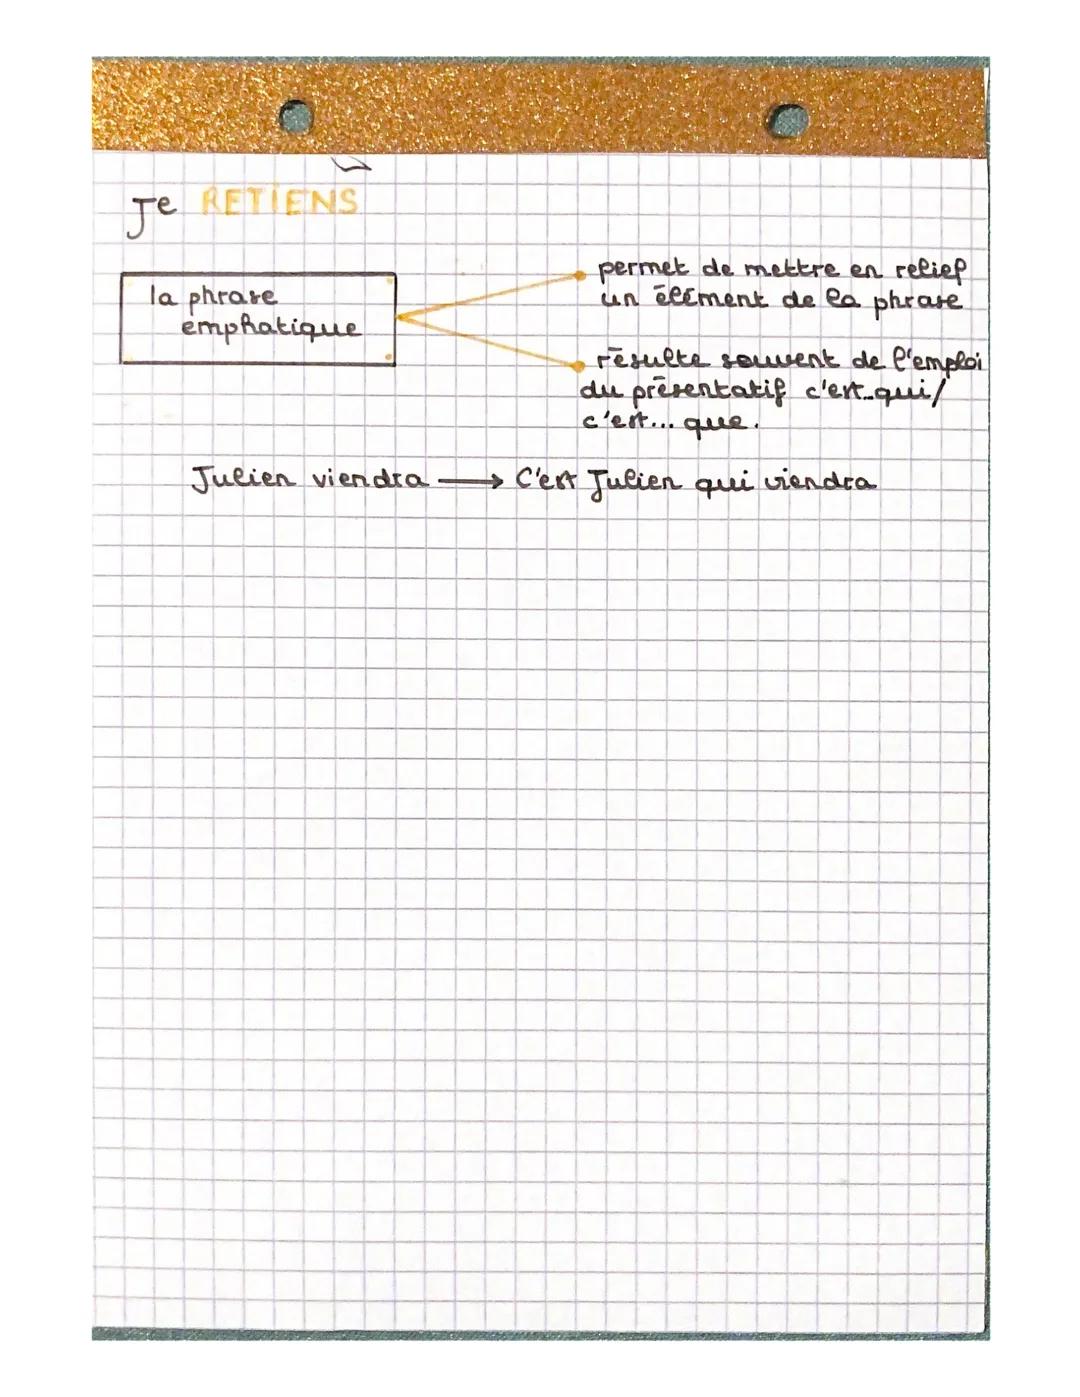 Je RETIENS
la phrase
emphatique
permet de mettre en relief
un élément de la phrase
résulte souvent de l'emploi
du présentatif c'est..qui/
c'est... que.
Julien viendra → C'est Julien qui viendra